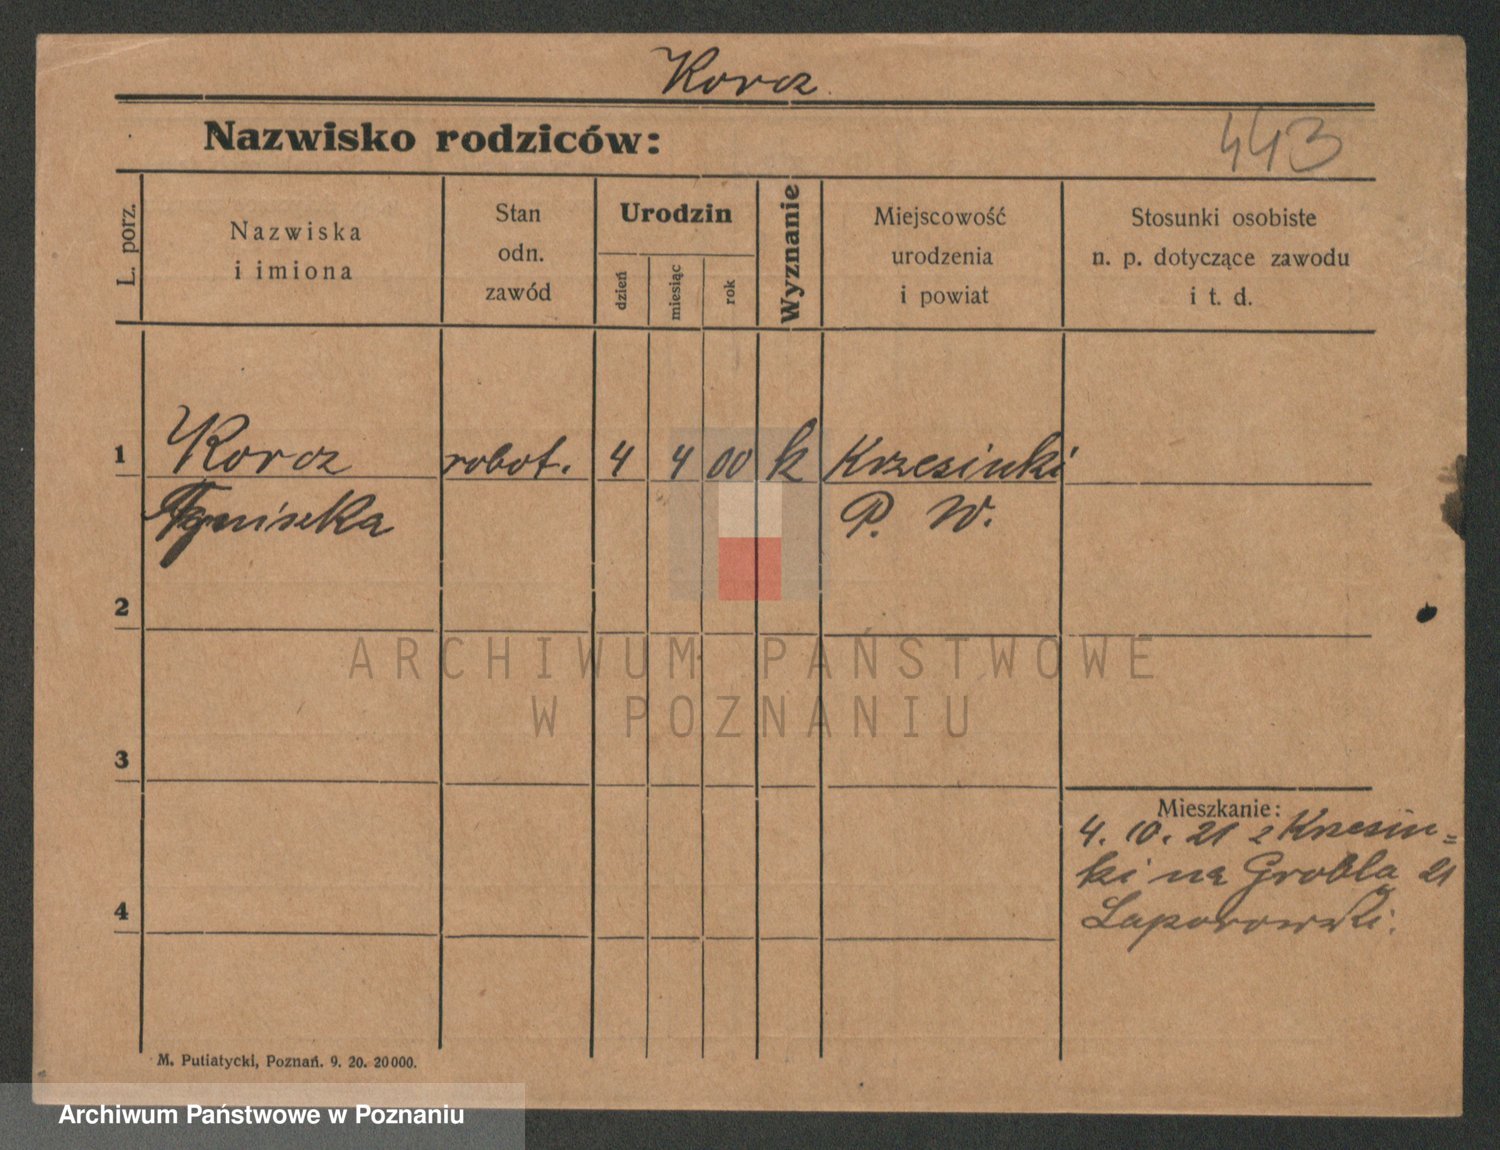 Korcz
Nazwisko rodziców:
443
L. porz.
Nazwiska
i imiona
Stan
odn.
zawód
Urodzin
dzień
miesiąc
rok
Wyznanie
Miejscowość
urodzenia
i powiat
Stosunki osobiste
n. p. dotyczące zawodu
i t. d.
1 Korcz robot. 4 4 00 k Krzesinki
Agniszka P. W.
2
ARCHIWUM PAŃSTWOWE
W POZNANIU
3
Mieszkanie:
4. 10. 21 z Krzesin=
ki na Grobla 21
4
M. Putiatycki, Poznań. 9. 20. 20000.
Archiwum Państwowe w Poznaniu